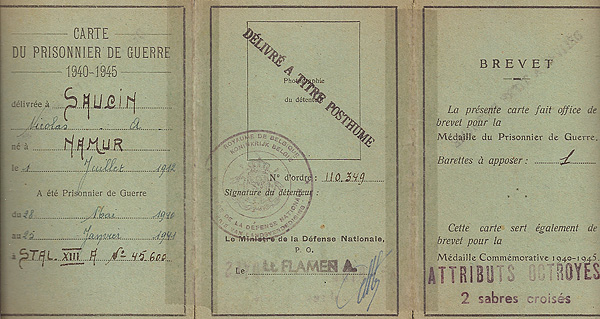 CARTE
DU PRISONNIER DE GUERRE
1940-1945
délivrée à SAUCIN
Nicolas A
né à NAMUR
le 1 Juillet 1912
A été Prisonnier de Guerre
du 28 Mai 1940
au 25 Janvier 1941
à STAL. XIII A N° 45.606
DÉLIVRÉ A TITRE POSTHUME
Photographie
du détenteur
ROYAUME DE BELGIQUE
KONINKRIJK BELGIË
DE LA DEFENSE NATIONALE
N° d'ordre : 110.349
Signature du détenteur :
Le Ministre de la Défense Nationale,
P. O.
Le FLAMEN A.
BREVET
La présente carte fait office de
brevet pour la
Médaille du Prisonnier de Guerre.
Barettes à apposer : 1
Cette carte sert également de
brevet pour la
Médaille Commémorative 1940-1945.
ATTRIBUTS OCTROYES
2 sabres croisés